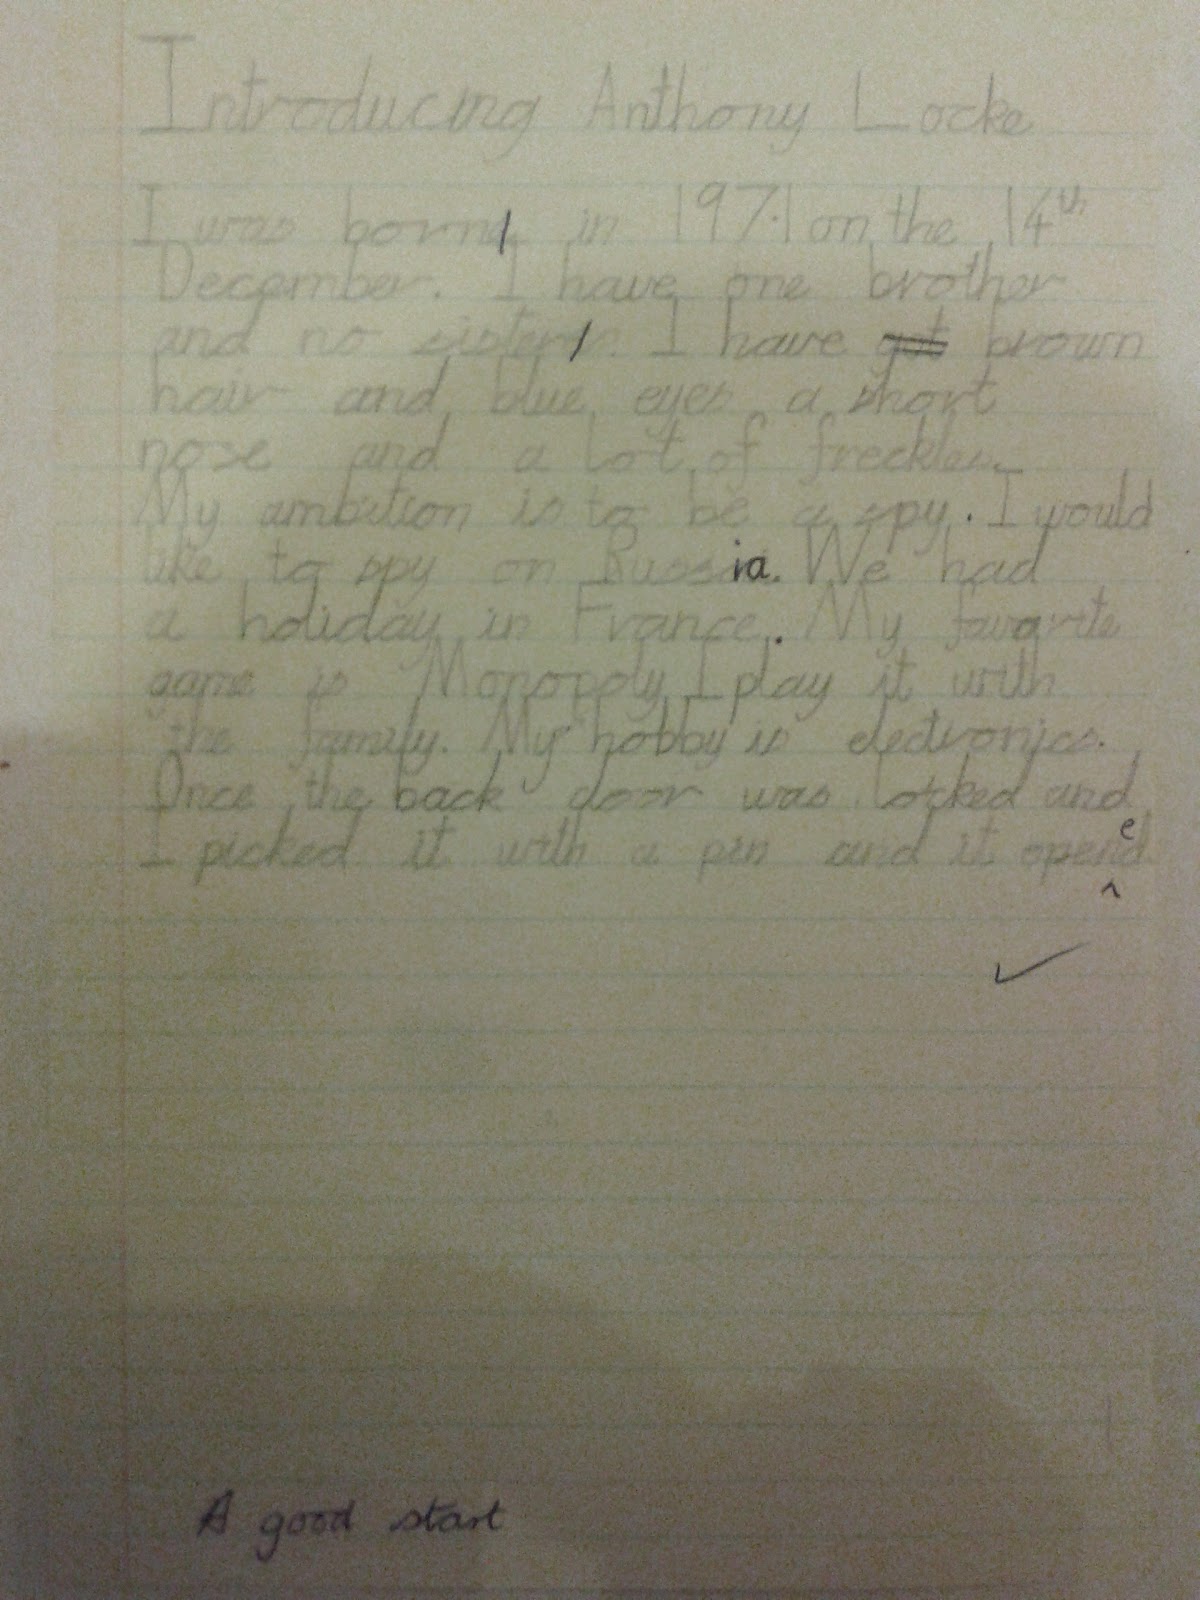 Introducing Anthony Locke
I was born in 1971 on the 14th
December. I have one brother
and no sisters I have got brown
hair and blue eyes a short
nose and a lot of freckles.
My ambition is to be a spy. I would
like to spy on Russia. We had
a holiday in France. My favorite
game is Monopoly I play it with
the family. My hobby is electronics.
Once the back door was locked and
I picked it with a pin and it opened
A good start